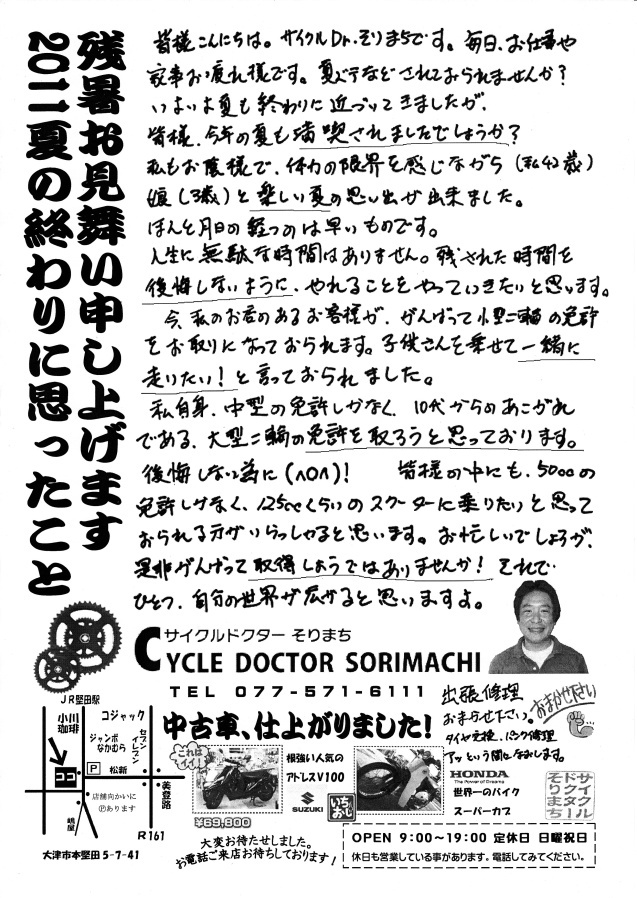 残暑お見舞い申し上げます
2011夏の終わりに思ったこと
皆様こんにちは。サイクルDr.そりまちです。毎日、お仕事や
家事お疲れ様です。夏バテなどされておられませんか？
いよいよ夏も終わりに近づいてきましたが、
皆様、今年の夏も満喫されましたでしょうか？
私もお陰様で、体力の限界を感じながら（私42歳）
娘（3歳）と楽しい夏の思い出が出来ました。
ほんと月日の経つのは早いものです。
人生に無駄な時間はありません。残された時間を
後悔しないように、やれることをやっていきたいと思います。
今、私のお店のあるお客様が、がんばって小型二輪の免許
をお取りになっておられます。子供さんを乗せて一緒に
走りたい！と言っておられました。
私自身、中型の免許しかなく、10代からのあこがれ
である、大型二輪の免許を取ろうと思っております。
後悔しない為に(^O^)！ 皆様の中にも、50ccの
免許しかなく、125ccくらいのスクーターに乗りたいと思って
おられる方がいらっしゃると思います。お忙しいでしょうが、
是非がんばって取得しようではありませんか！それで
ひとつ、自分の世界が広がると思いますよ。
サイクルドクター そりまち
CYCLE DOCTOR SORIMACHI
TEL 077-571-6111
出張修理
おまかせ下さい。
おまかせ下さい
タイヤ交換、パンク修理
アッという間になおします。
JR堅田駅
小川珈琲
コジャック
ジャンボなかむら
セブンイレブン
ココ
P
松新
店舗向かいに
Ⓟあります
嶋屋
美登路
R161
大津市本堅田 5-7-41
中古車、仕上がりました！
これはイイ！
¥69,800
根強い人気の
アドレスV100
SUZUKI
いちおし
HONDA
The Power of Dreams
世界一のバイク
スーパーカブ
サイクルドクターそりまち
大変お待たせしました。
お電話ご来店お待ちしております！
OPEN 9:00～19:00 定休日 日曜祝日
休日も営業している事があります。電話してみてください。